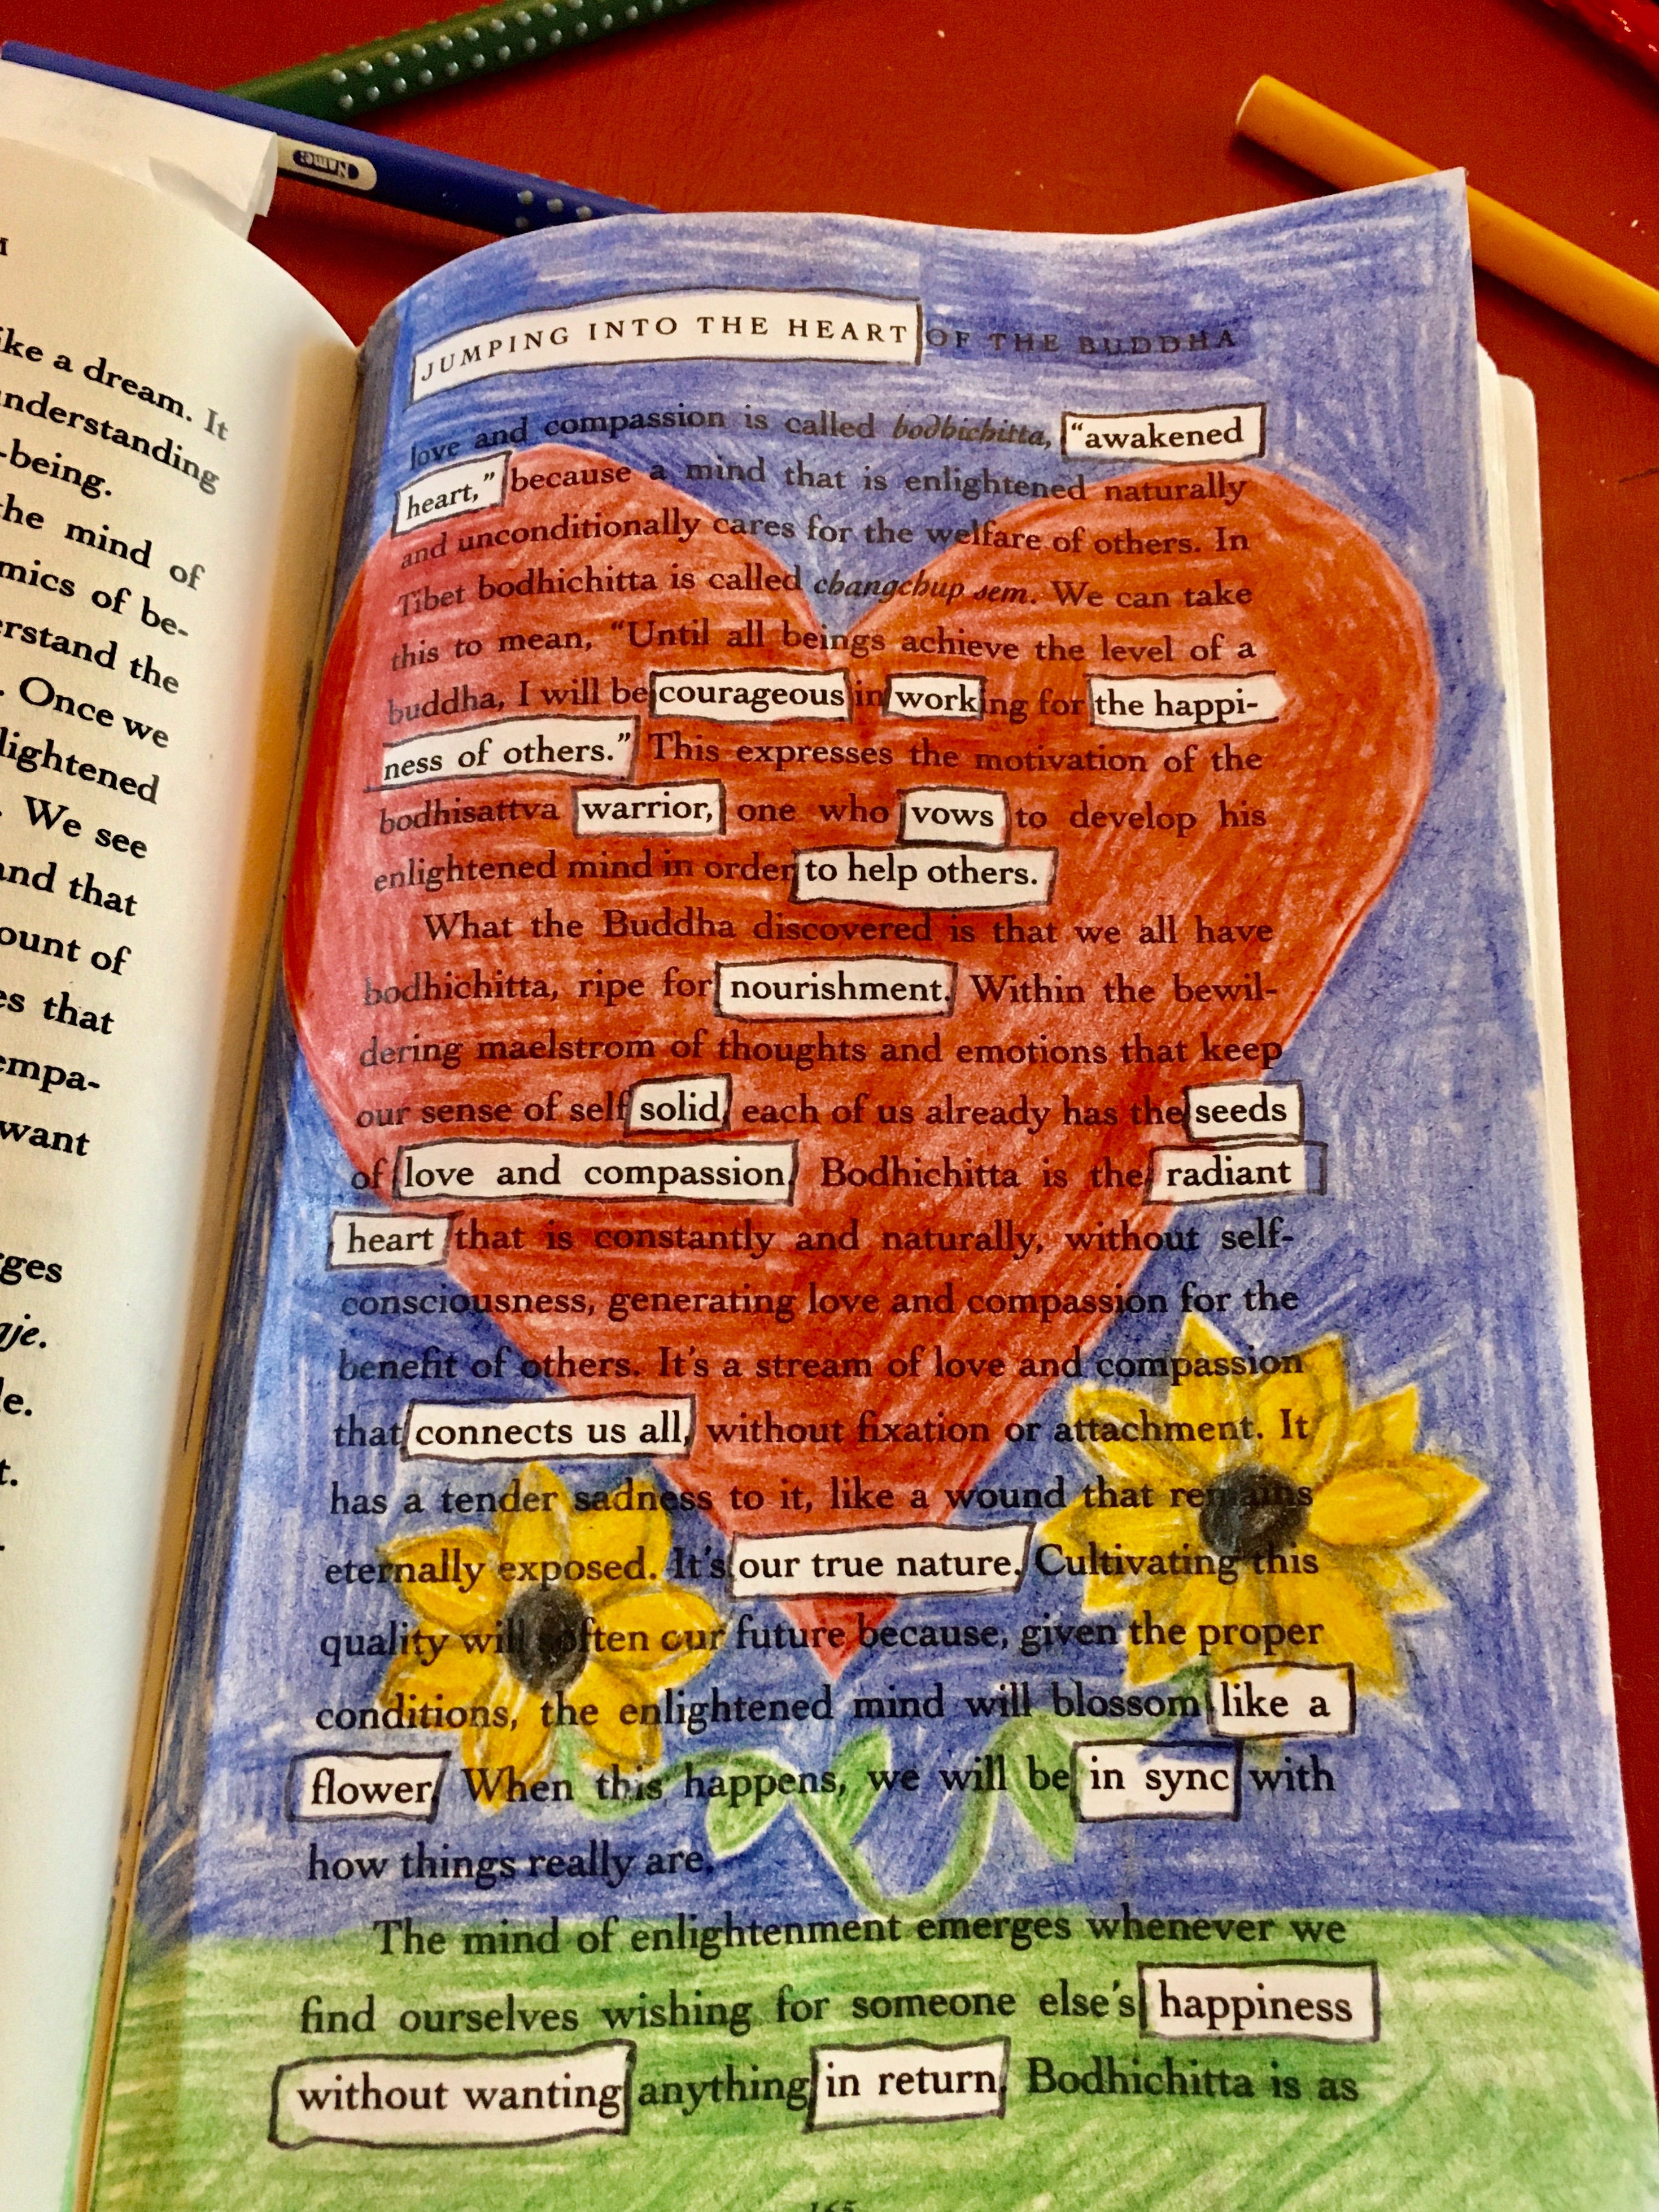 Name:
ike a dream. It
nderstanding
-being.
he mind of
mics of be-
erstand the
. Once we
lightened
. We see
and that
ount of
es that
empa-
want
ges
aje.
le.
t.
JUMPING INTO THE HEART OF THE BUDDHA
love and compassion is called bodhichitta, “awakened
heart,” because a mind that is enlightened naturally
and unconditionally cares for the welfare of others. In
Tibet bodhichitta is called changchup sem. We can take
this to mean, “Until all beings achieve the level of a
buddha, I will be courageous in working for the happi-
ness of others.” This expresses the motivation of the
bodhisattva warrior, one who vows to develop his
enlightened mind in order to help others.
What the Buddha discovered is that we all have
bodhichitta, ripe for nourishment. Within the bewil-
dering maelstrom of thoughts and emotions that keep
our sense of self solid, each of us already has the seeds
of love and compassion. Bodhichitta is the radiant
heart that is constantly and naturally, without self-
consciousness, generating love and compassion for the
benefit of others. It's a stream of love and compassion
that connects us all, without fixation or attachment. It
has a tender sadness to it, like a wound that remains
eternally exposed. It's our true nature. Cultivating this
quality will soften our future because, given the proper
conditions, the enlightened mind will blossom like a
flower. When this happens, we will be in sync with
how things really are.
The mind of enlightenment emerges whenever we
find ourselves wishing for someone else's happiness
without wanting anything in return. Bodhichitta is as
165